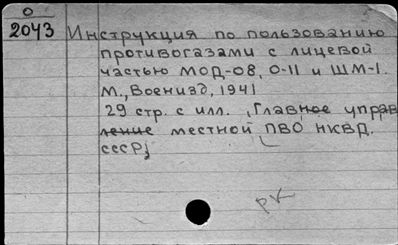 О
2043 Инструкция по пользованию
противогазами с лицевой
частью МОД-08, О-11 и ШМ-1.
М., Воениздат, 1941
29 стр. с илл. (Главное управ
ление местной ПВО НКВД.
СССР)
РК